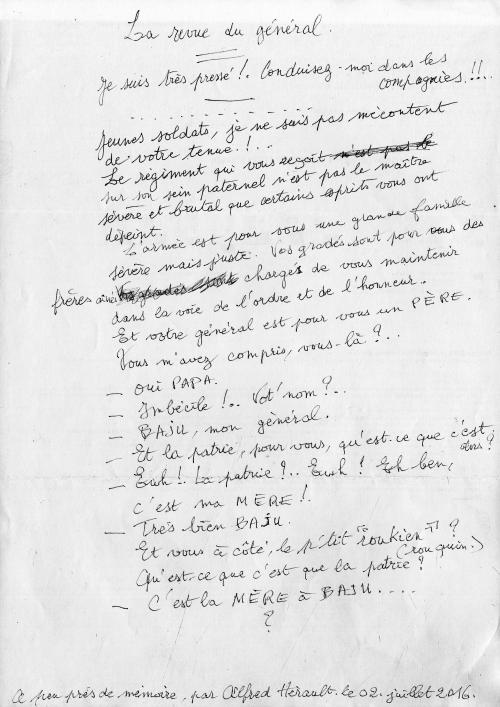 La revue du général.
Je suis très pressé !. Conduisez-moi dans les
compagnies.!!..
Jeunes soldats, je ne suis pas mécontent
de votre tenue. !...
Le régiment qui vous reçoit n'est pas le
sur son sein paternel n'est pas le maître
sévère et brutal que certains esprits vous ont
dépeint.
L'armée est pour vous une grande famille
sévère mais juste. Vos gradés sont pour vous des
frères ainés chargés de vous maintenir
dans la voie de l'ordre et de l'honneur..
Et votre général est pour vous un PÈRE.
Vous m'avez compris, vous-là ?..
— OUI PAPA.
— Imbécile !.. Vot' nom ?..
— BAJU, mon général.
— Et la patrie, pour vous, qu'est-ce que c'est,
alors ?
— Euh !. La patrie ?.. Euh ! Eh ben,
c'est ma MÈRE !.
— Très bien BAJU.
Et vous à côté, le p'tit "roukien" ?
(rouquin.)
Qu'est-ce que c'est que la patrie ?
— C'est la MÈRE à BAJU.....
?
A peu près de mémoire, par Alfred Hérault. le 02. juillet 2016.